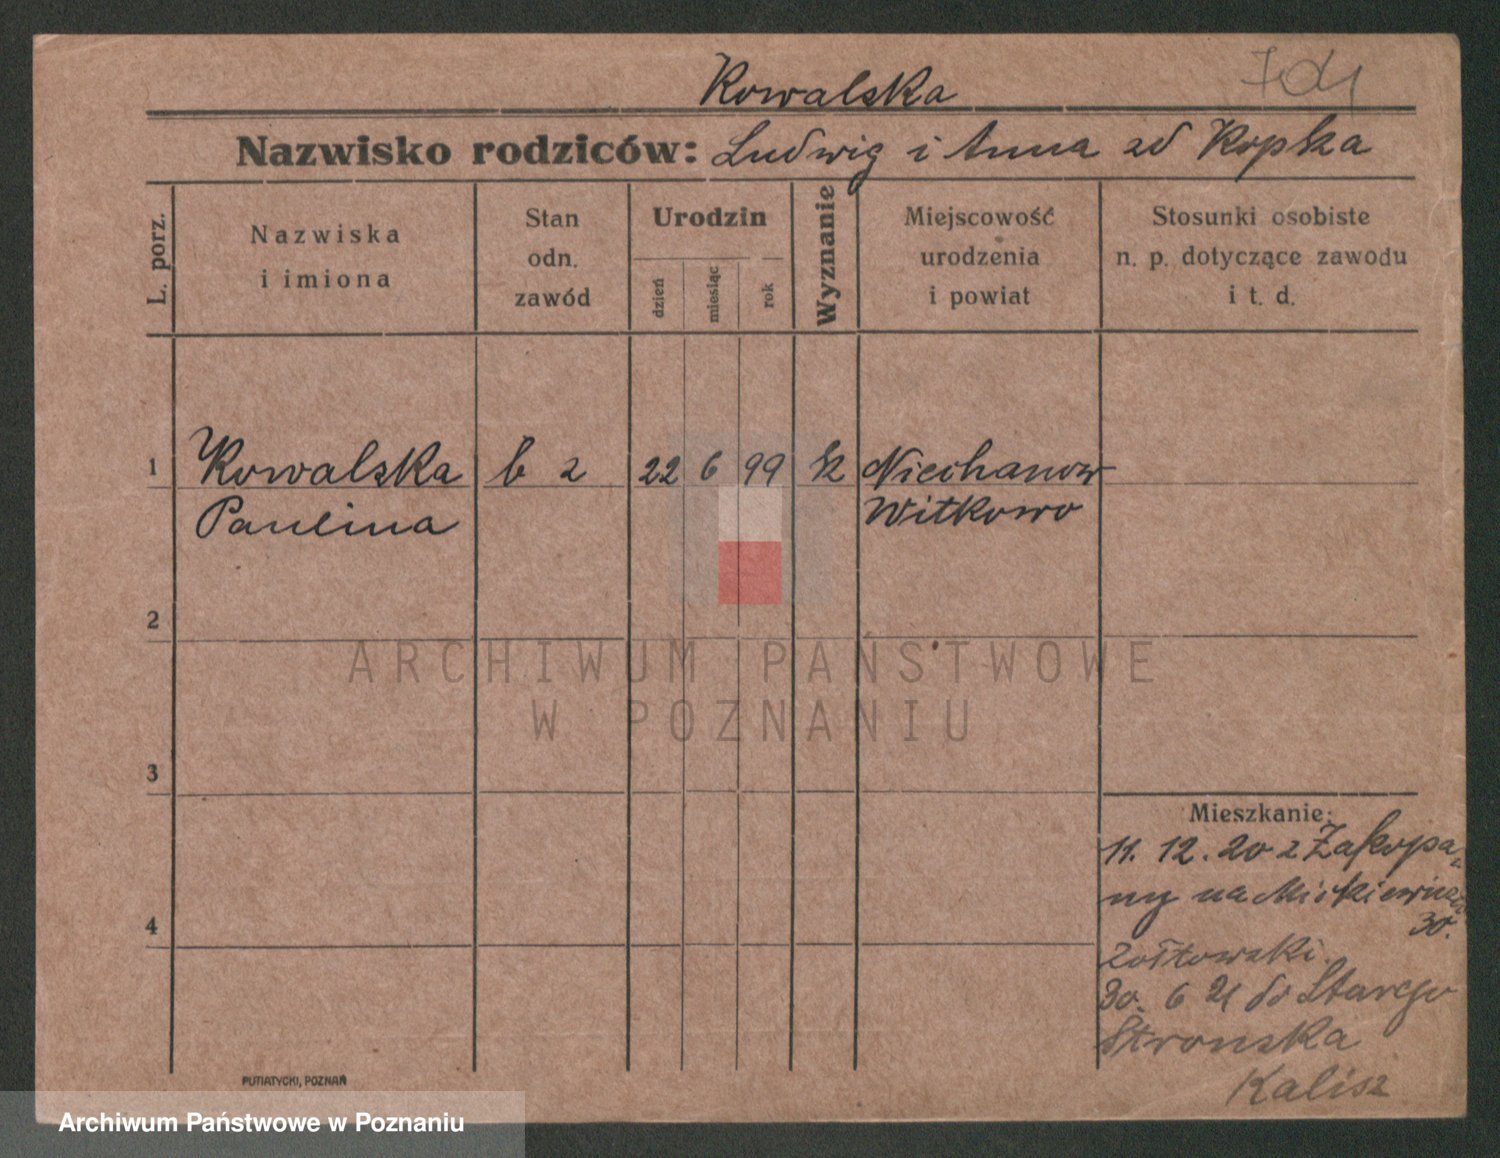 Kowalska
Nazwisko rodziców: Ludwig i Anna zd Kopka
L. porz.
Nazwiska
i imiona
Stan
odn.
zawód
Urodzin
dzień
miesiąc
rok
Wyznanie
Miejscowość
urodzenia
i powiat
Stosunki osobiste
n. p. dotyczące zawodu
i t. d.
1 Kowalska b z 22 6 99 Niechanow
Paulina Witkowo
2
ARCHIWUM PAŃSTWOWE
W POZNANIU
3
4
Mieszkanie:
11. 12. 20 z Zakopa-
ny na Mickiewicza
30.
Żółtowski.
30. 6 21 do Starego
Stronska
Kalisz
PUTIATYCKI, POZNAŃ
Archiwum Państwowe w Poznaniu